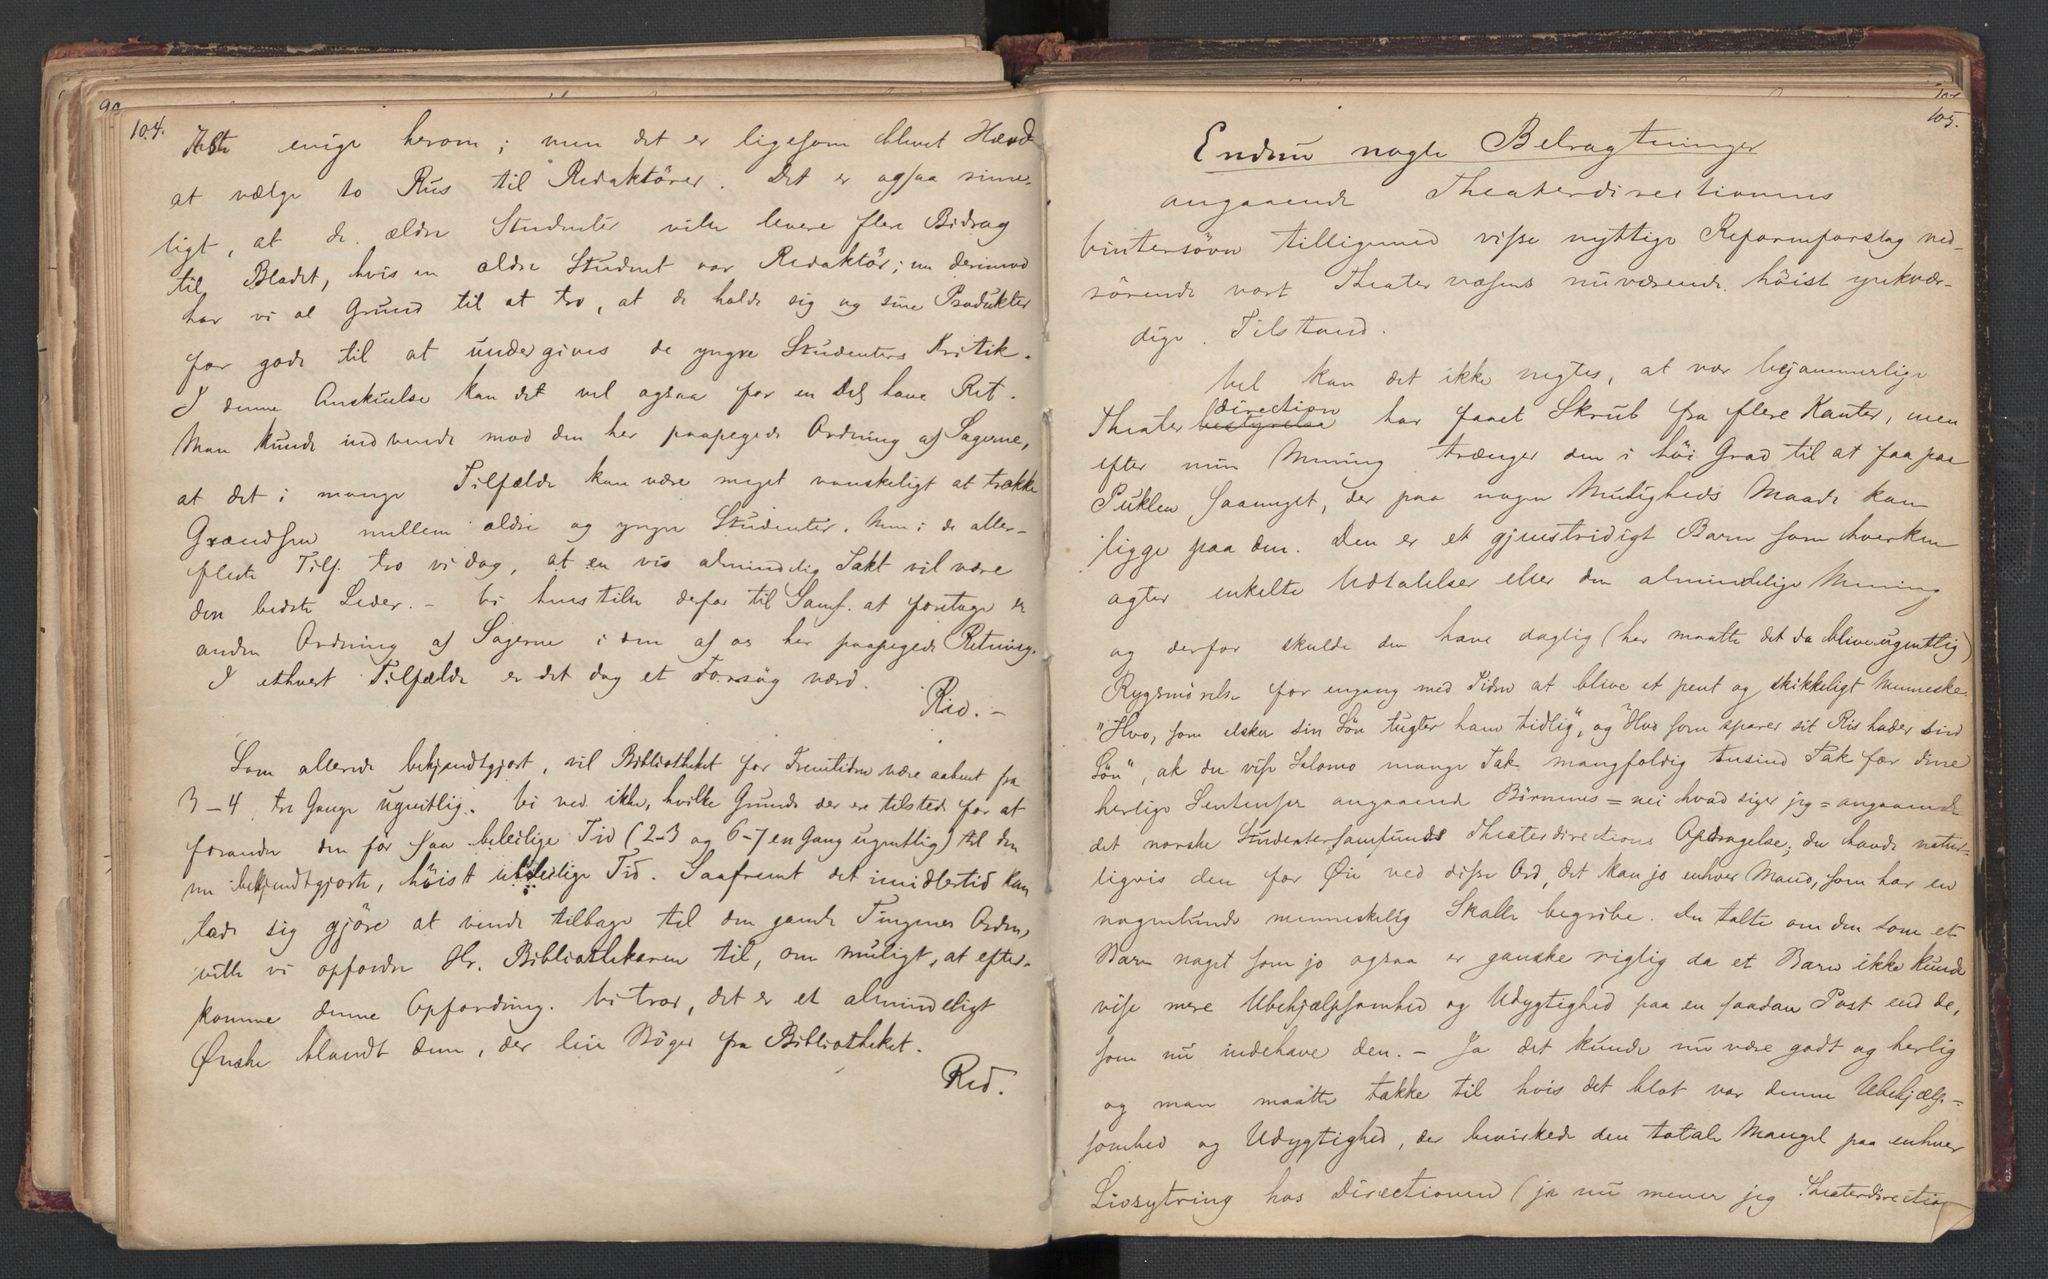 104.
enige herom; men det er ligesom blevet Hævd
at vælge to Rus til Redaktörer. Det er ogsaa rime-
ligt, at de ældre Studenter vilde levere flere Bidrag
til Bladet, hvis en ældre Student var Redaktör; nu derimod
har vi al Grund til at tro, at de holde sig og sine Produkter
for gode til at undergives de yngre Studenters Kritik.
I denne Anskuelse kan det vel ogsaa for en Del have Ret.
Man kunde indvende mod den her paapegede Ordning af Sagerne,
at det i mange Tilfælde kan være meget vanskeligt at trække
Grændsen mellem ældre og yngre Studenter. Men i de aller-
fleste Tilf. tro vi dog, at en vis almindelig Takt vil være
den bedste Leder. – Vi henstille derfor til Samf. at foretage en
anden Ordning af Sagerne i den af os her paapegede Retning.
I ethvert Tilfælde er det dog et Forsög værd.
Red. –
Som allerede bekjendtgjort, vil Bibliotheket for Fremtiden være aabent fra
3–4 tre Gange ugentlig. Vi ved ikke, hvilke Grunde der er tilstede for at
forandre den för saa beleilige Tid (2–3 og 6–7 en Gang ugentlig) til den
nu bekjendtgjorte, höist ubeleilige Tid. Saafremt det imidlertid kan
lade sig gjöre at vende tilbage til den gamle Tingenes Orden,
ville vi opfordre Hr. Bibliothekaren til, om muligt, at efter-
komme denne Opfordring. Vi tror, det er et almindeligt
Ønske blandt dem, der leie Böger fra Bibliotheket.
Red.
105.
Endnu nogle Betragtninger
angaaende Theaterdirectionens
Vintersövn tilligemed visse nyttige Reformforslag ved-
rörende vort Theatervæsens nuværende höist ynkvær-
dige Tilstand.
Vel kan det ikke negtes, at vor bejammerlige
direction
Theaterbestyrelse har faaet Skrub fra flere Kanter, men
efter min Mening trænger den i höi Grad til at faa paa
Puklen saameget, der paa nogen Muligheds Maade kan
ligge paa den. Den er et gjenstridigt Barn som hverken
agter enkelte Udtalelser eller den almindelige Mening
og derfor skulde den have daglig (her maatte det da blive ugentlig)
Rygsmörelse for engang med Tiden at blive et pent og skikkeligt Menneske.
"Hvo, som elsker sin Sön tugter ham tidlig", og "Hvo som sparer sit Ris hader sin
Sön", ak du vise Salomo mange Tak mangfoldig tusind Tak for dine
herlige Sentenser angaaende Börnenes = nei hvad siger jeg = angaaende
det norske Studentersamfunds Theaterdirections Opdragelse; du havde natur-
ligvis den for Øie ved disse Ord, det kan jo enhver Mand, som har en
nogenlunde menneskelig Skalle begribe. Du talte om den som et
Barn noget som jo ogsaa er ganske rigtig da et Barn ikke kunde
vise mere Ubehjælpsomhed og Udygtighed paa en saadan Post end de,
som nu indehave den. – Ja det kunde nu være godt og herlig
og man maatte takke til hvis det blot var denne Ubehjælp-
somhed og Udygtighed, der bevirkede den totale Mangel paa enhver
Livsytring hos Directionen (ja nu mener jeg Theaterdirection